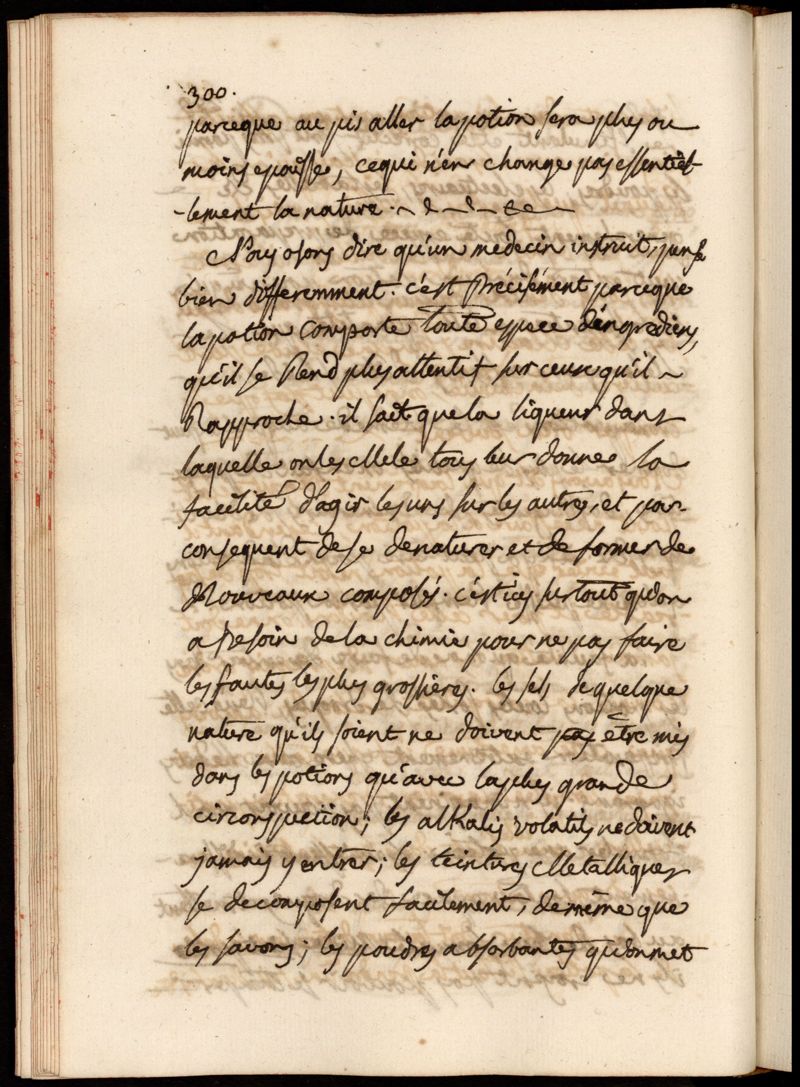 300.
parceque au pis aller la potion sera plus ou
moins epaisse, ce qui n'en change pas essentiel-
-lement la nature.
Nous osons dire qu'un medecin instruit, pense
bien differemment. c'est Précisément parceque
la potion Comporte toute espece d'ingrediens,
qu'il se Rend plus attentif sur ceux qu'il
Rapproche. il sait que la liqueur dans
laquelle on les Mele tous leur donne la
facilité d'agir les uns sur les autres, et par
consequent de se denaturer et de former de
Nouveaux composés. c'est ici surtout qu'on
a Besoin de la chimie pour ne pas faire
les fautes les plus grossieres. les sels de quelque
nature qu'ils soient ne doivent pas être mis
dans les potions qu'avec la plus grande
circonspection; les alKalis volatils ne doivent
jamais y entrer; les teintures Metalliques
se decomposent facilement, de même que
les savons; les poudres absorbantes qu'on met